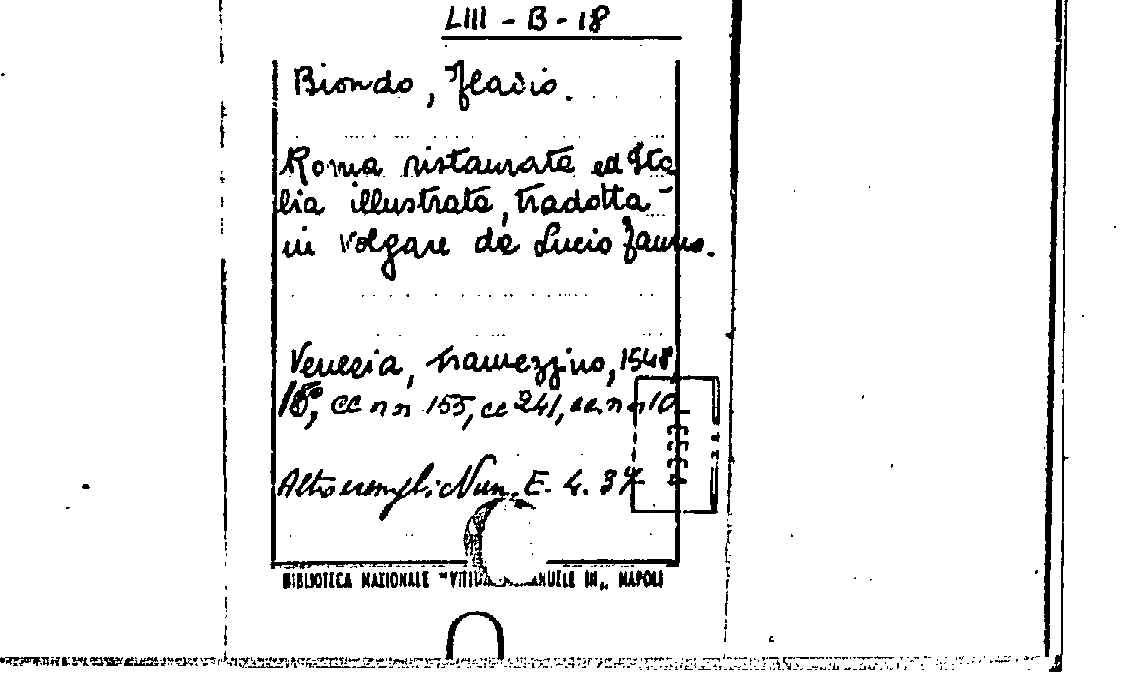 LIII - B - 18
Biondo, Flavio.
Roma ristaurata ed Ita
lia illustrata, tradotta
in volgare da Lucio Fauno.
Venezia, Tramezzino, 1548,
cc nn 155, cc 241, cc. nn 10
Altro esempl: Nun. E. 4. 37
BIBLIOTECA NAZIONALE "VITTORIO EMANUELE III„ NAPOLI